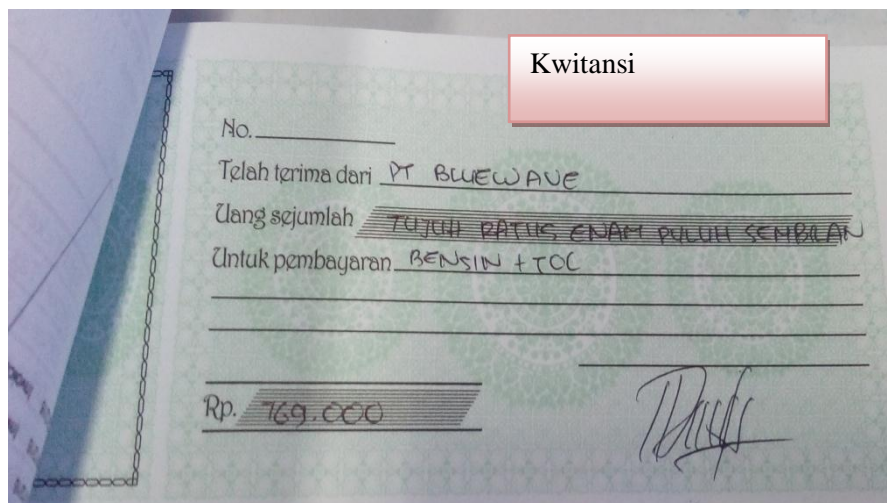 Kwitansi
No.
Telah terima dari PT BLUEWAVE
Uang sejumlah TUJUH RATUS ENAM PULUH SEMBILAN
Untuk pembayaran BENSIN + TOL
Rp. 769.000